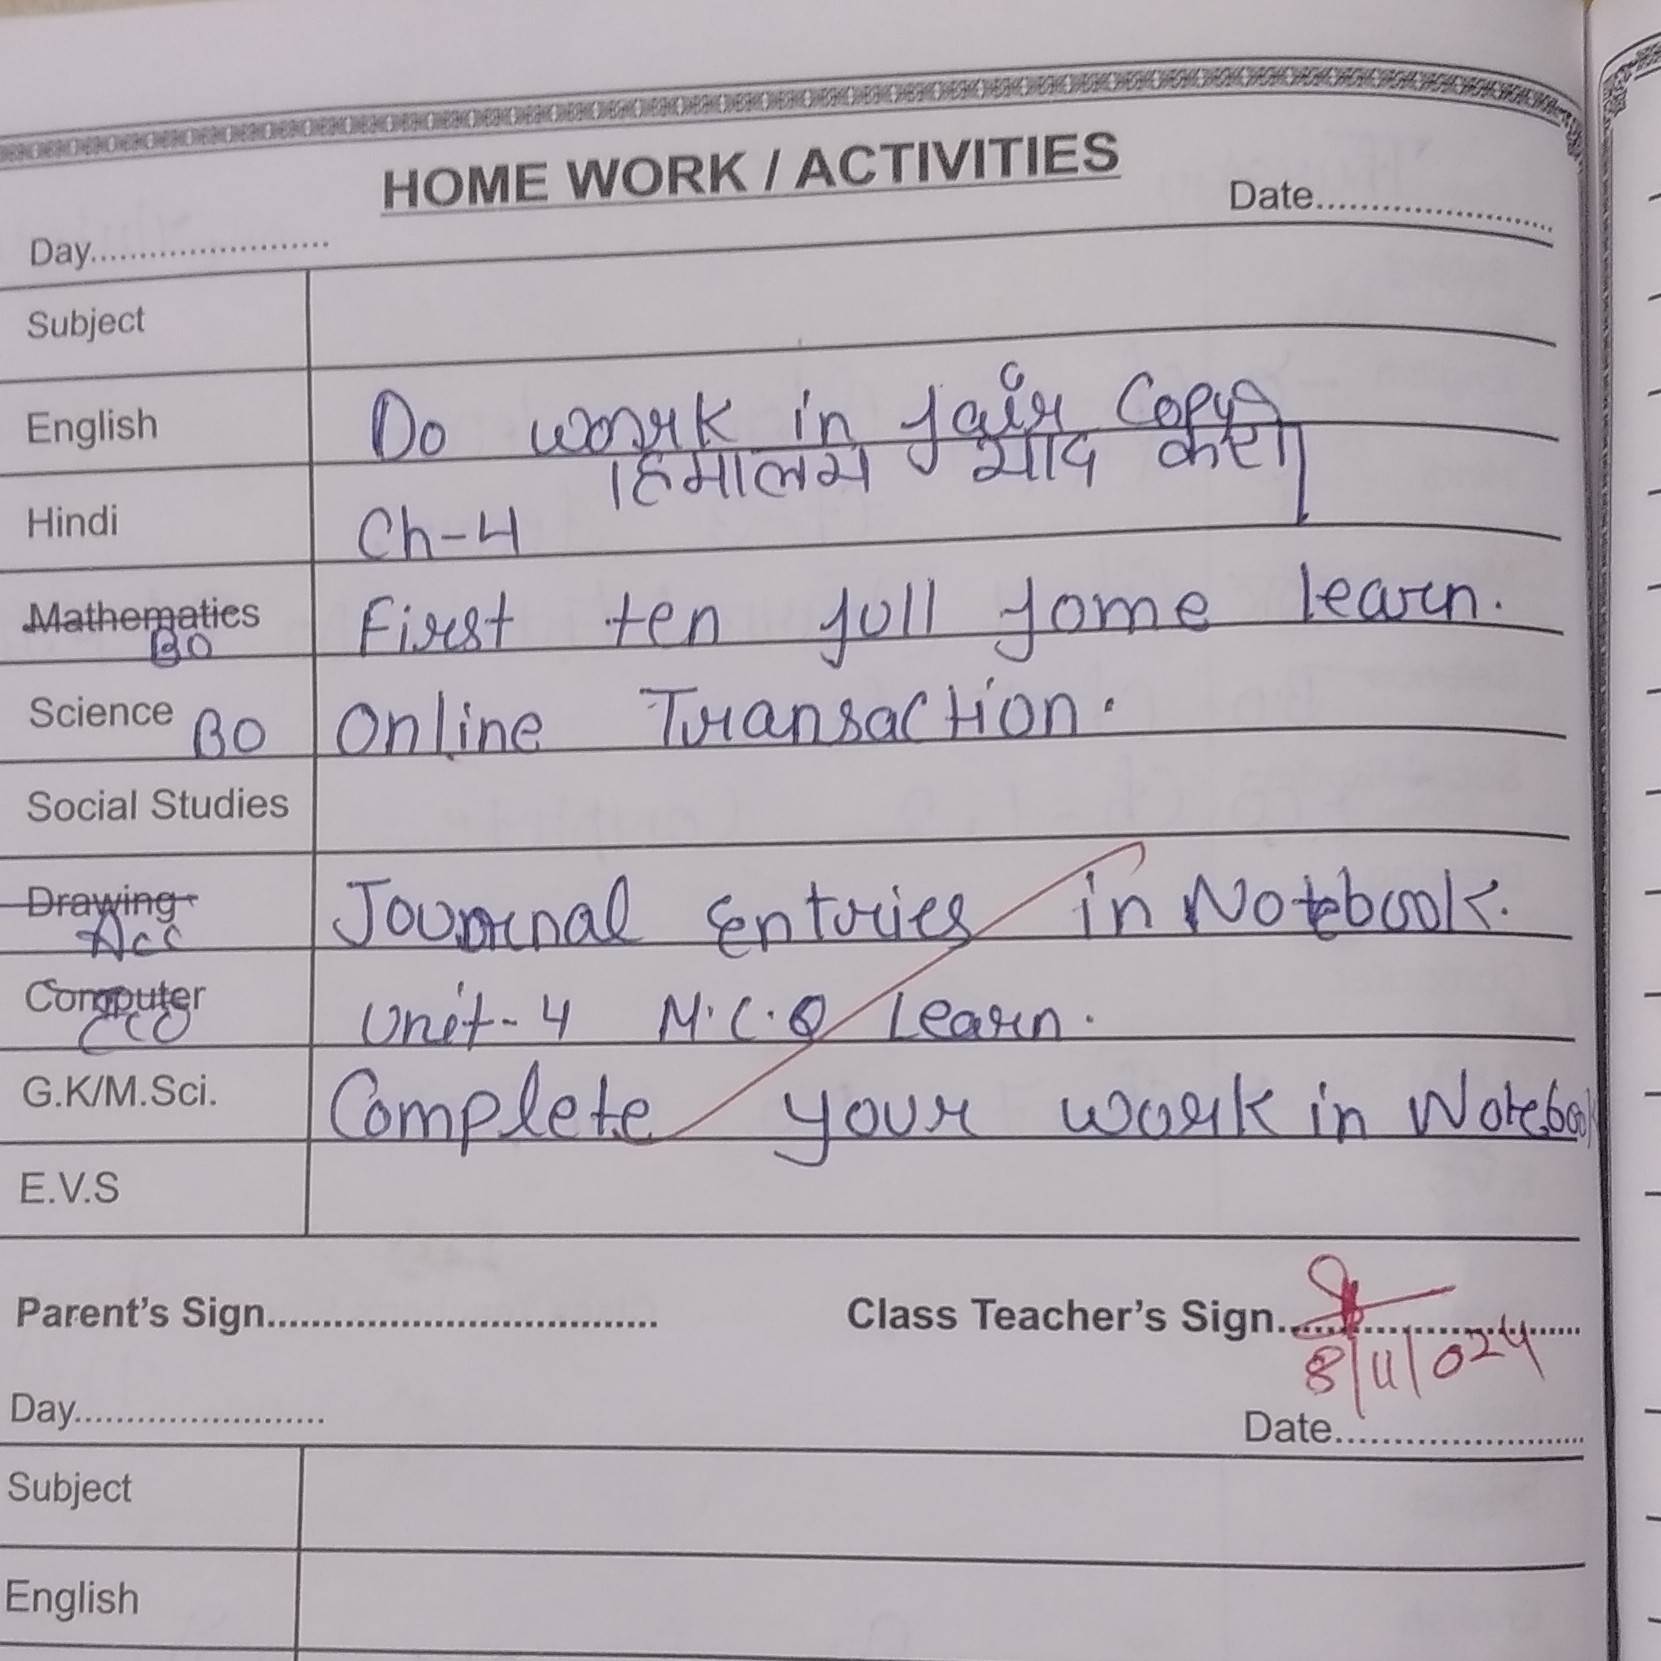 HOME WORK / ACTIVITIES
Day........................ Date........................
Subject
English Do work in fair Copy
Hindi Ch-4 हिमालय याद करो
Mathematics BO First ten full fome learn.
Science BO Online Transaction.
Social Studies
Drawing Acc Journal entries in Notebook.
Computer ECO Unit-4 M.C.Q Learn.
G.K/M.Sci. Complete your work in Notebook
E.V.S
Parent's Sign.................................... Class Teacher's Sign..............................
8/11/024
Day........................ Date........................
Subject
English